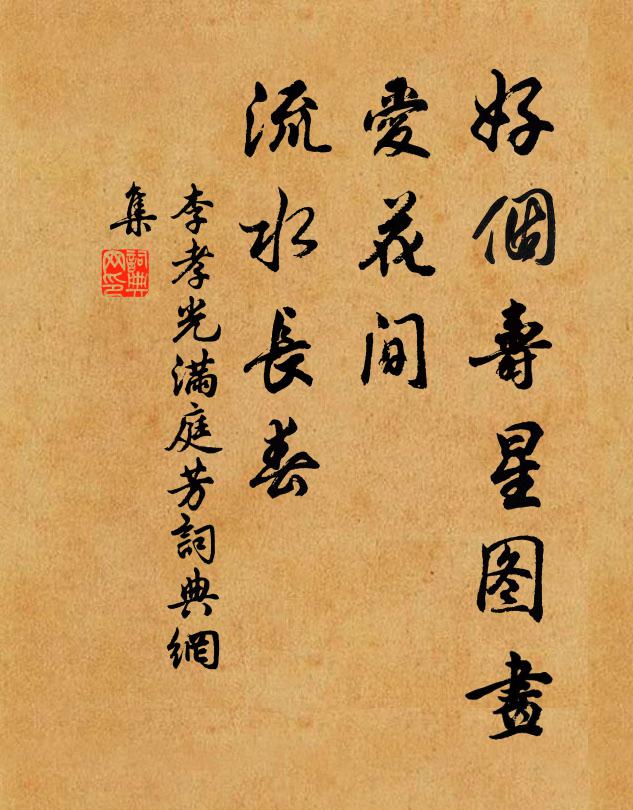 好個壽星图畫
愛花间
流水長春
李孝光滿庭芳詞典網
集
詞典
网印